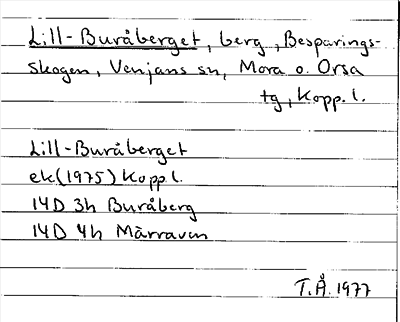 Lill-Buråberget, berg, Besparings-
skogen, Venjans sn, Mora o. Orsa
tg, Kopp. l.
Lill-Buråberget
ek (1975) Kopp l.
14D 3h Buråberg
14D 4h Märraven
T.Å. 1977